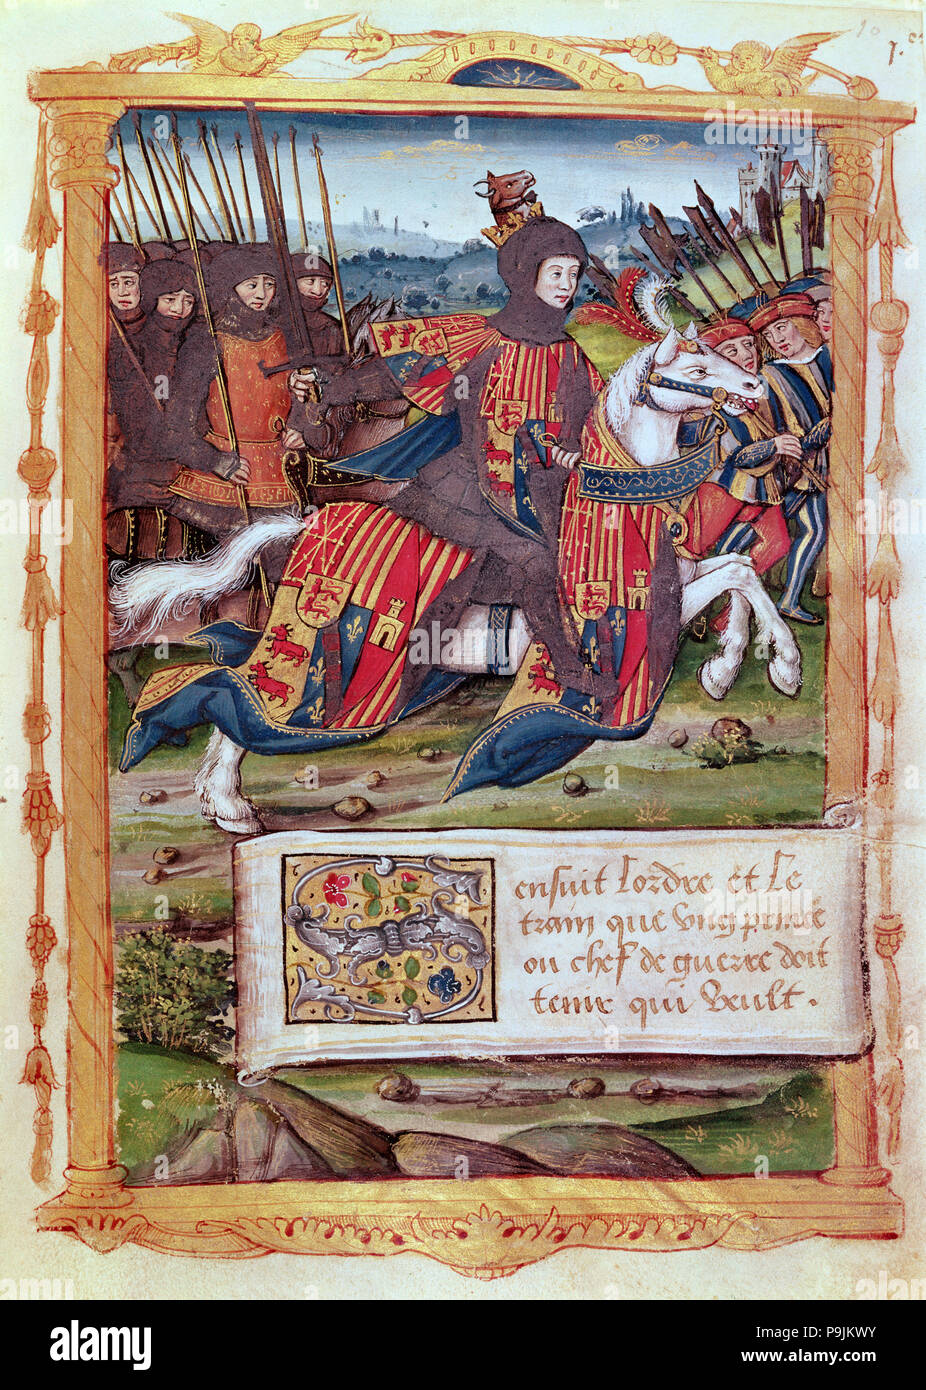 ensuit lordre et le
train que ung prince
ou chef de guerre doit
tenir qui veult .
alamy
Image ID: P9JKWY
www.alamy.com